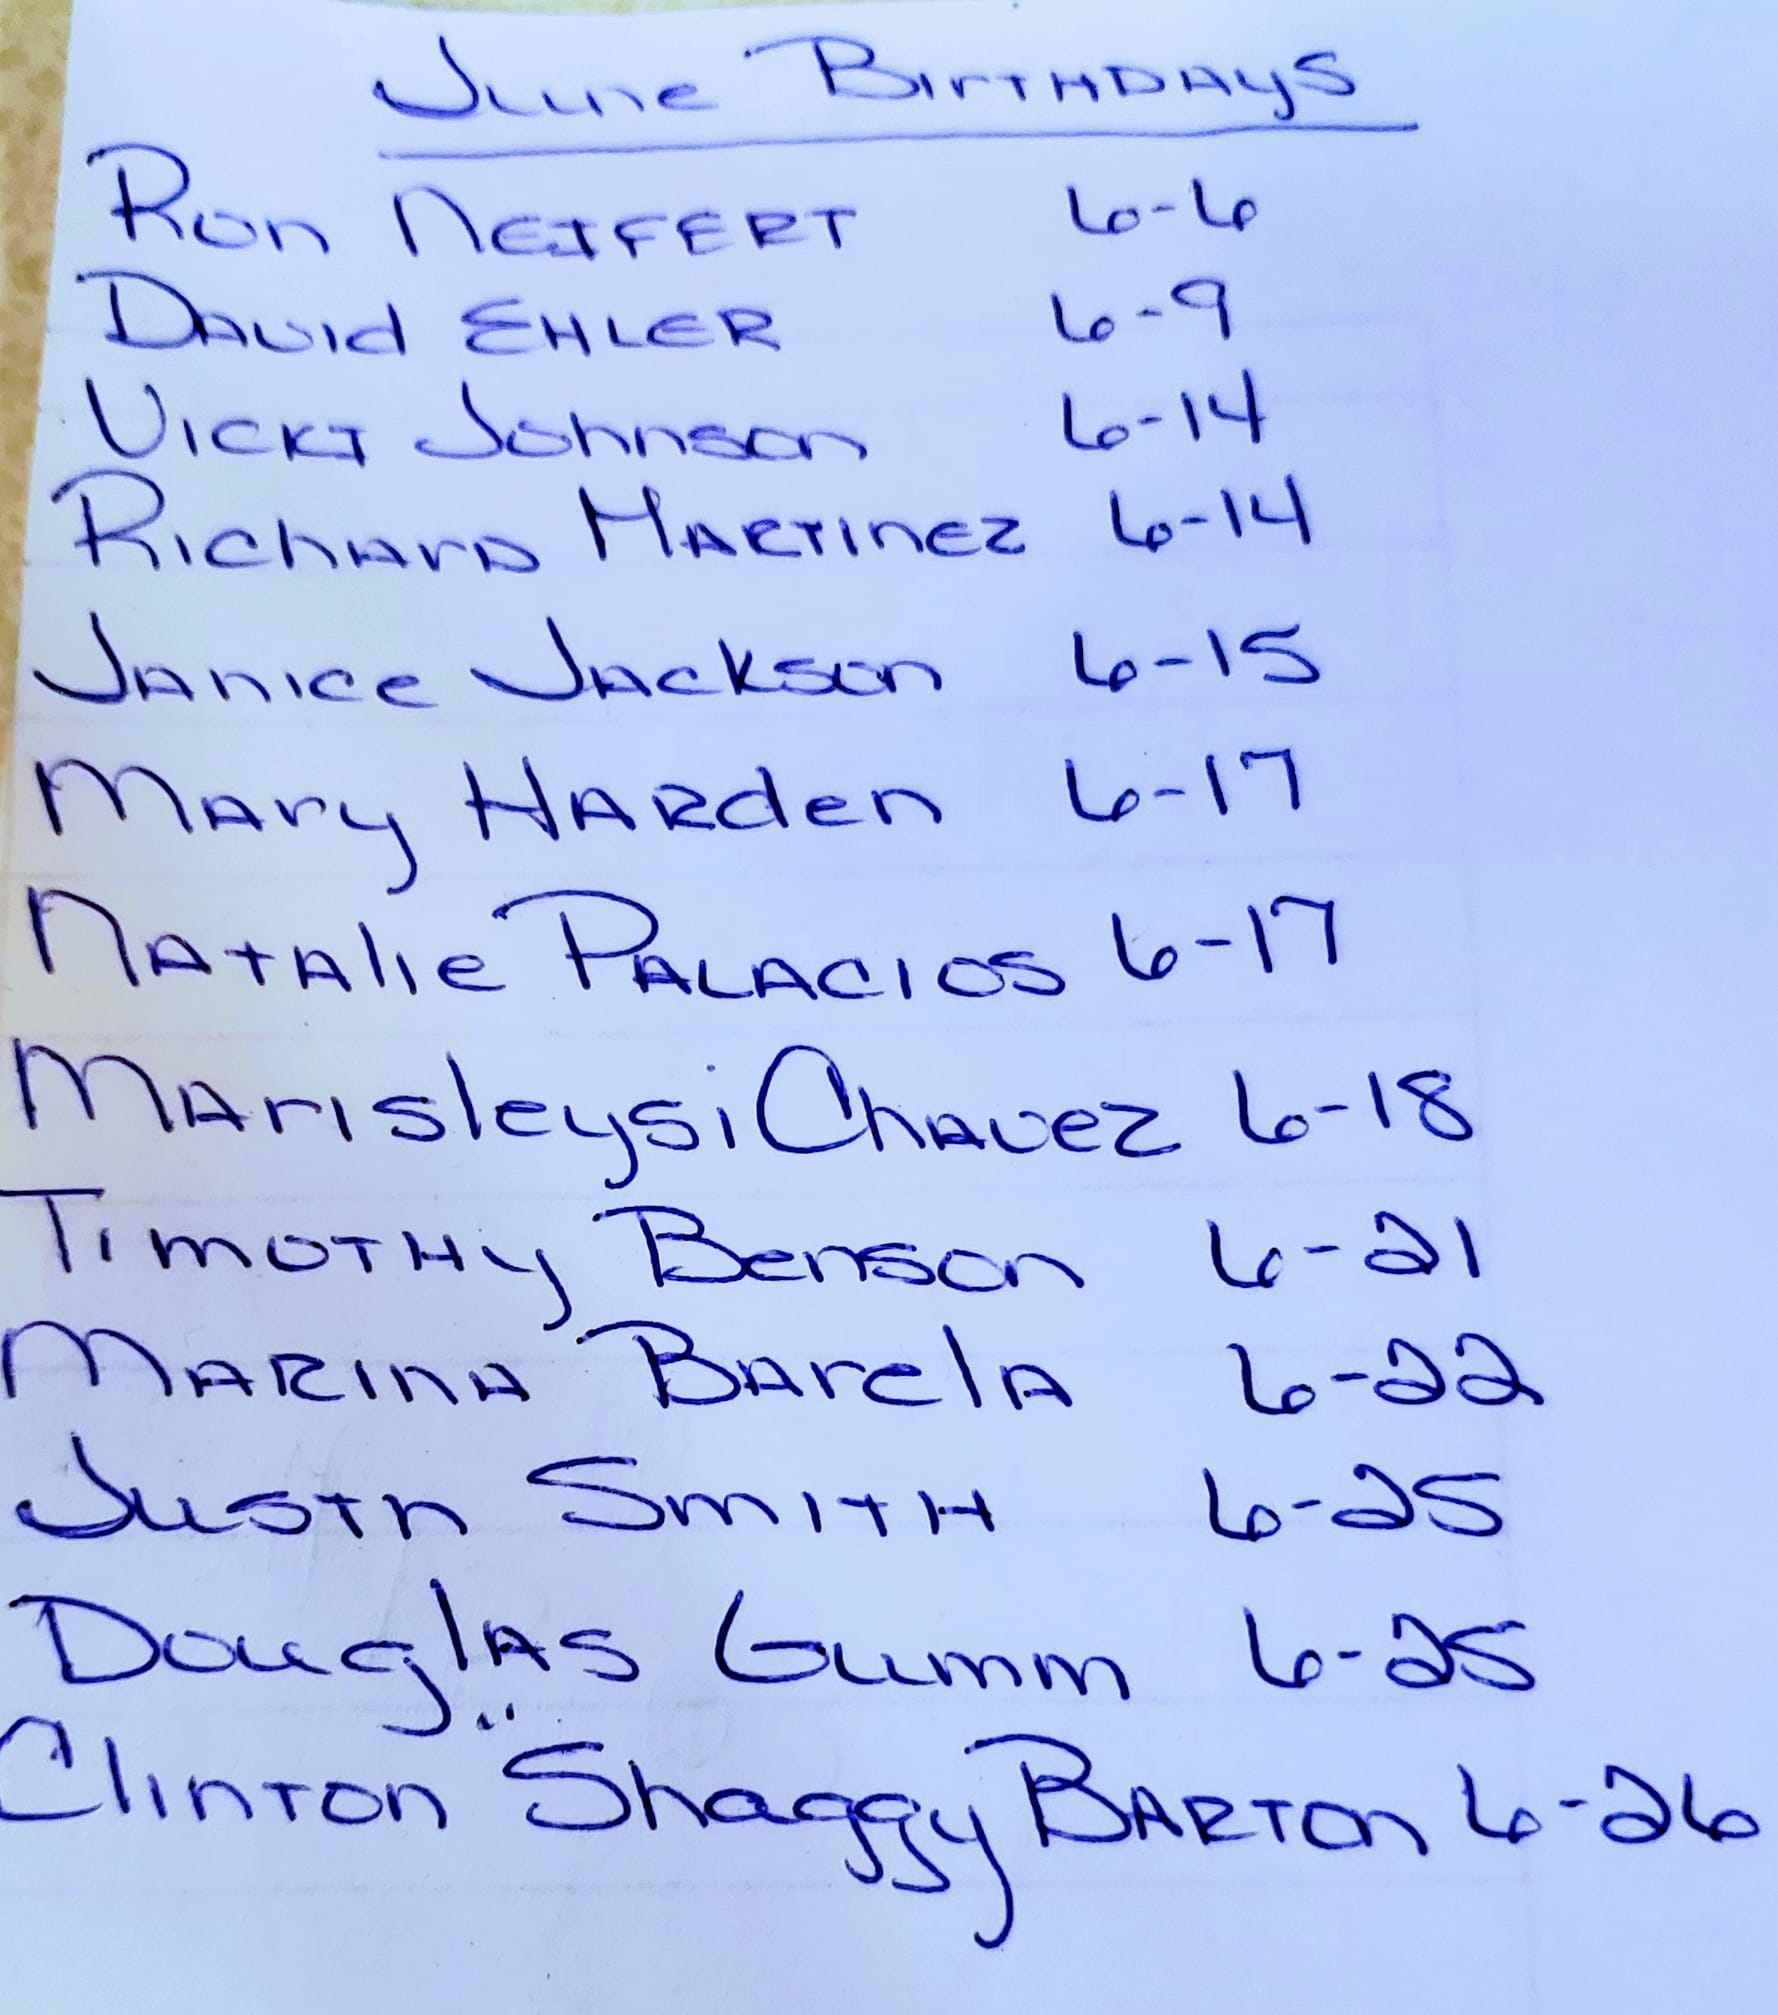 June Birthdays
Ron Neifert 6-6
David Ehler 6-9
Vicki Johnson 6-14
Richard Martinez 6-14
Janice Jackson 6-15
Mary Harden 6-17
Natalie Palacios 6-17
Marisleysi Chavez 6-18
Timothy Benson 6-21
Marina Barela 6-22
Justin Smith 6-25
Douglas Gumm 6-25
Clinton "Shaggy Barton 6-26